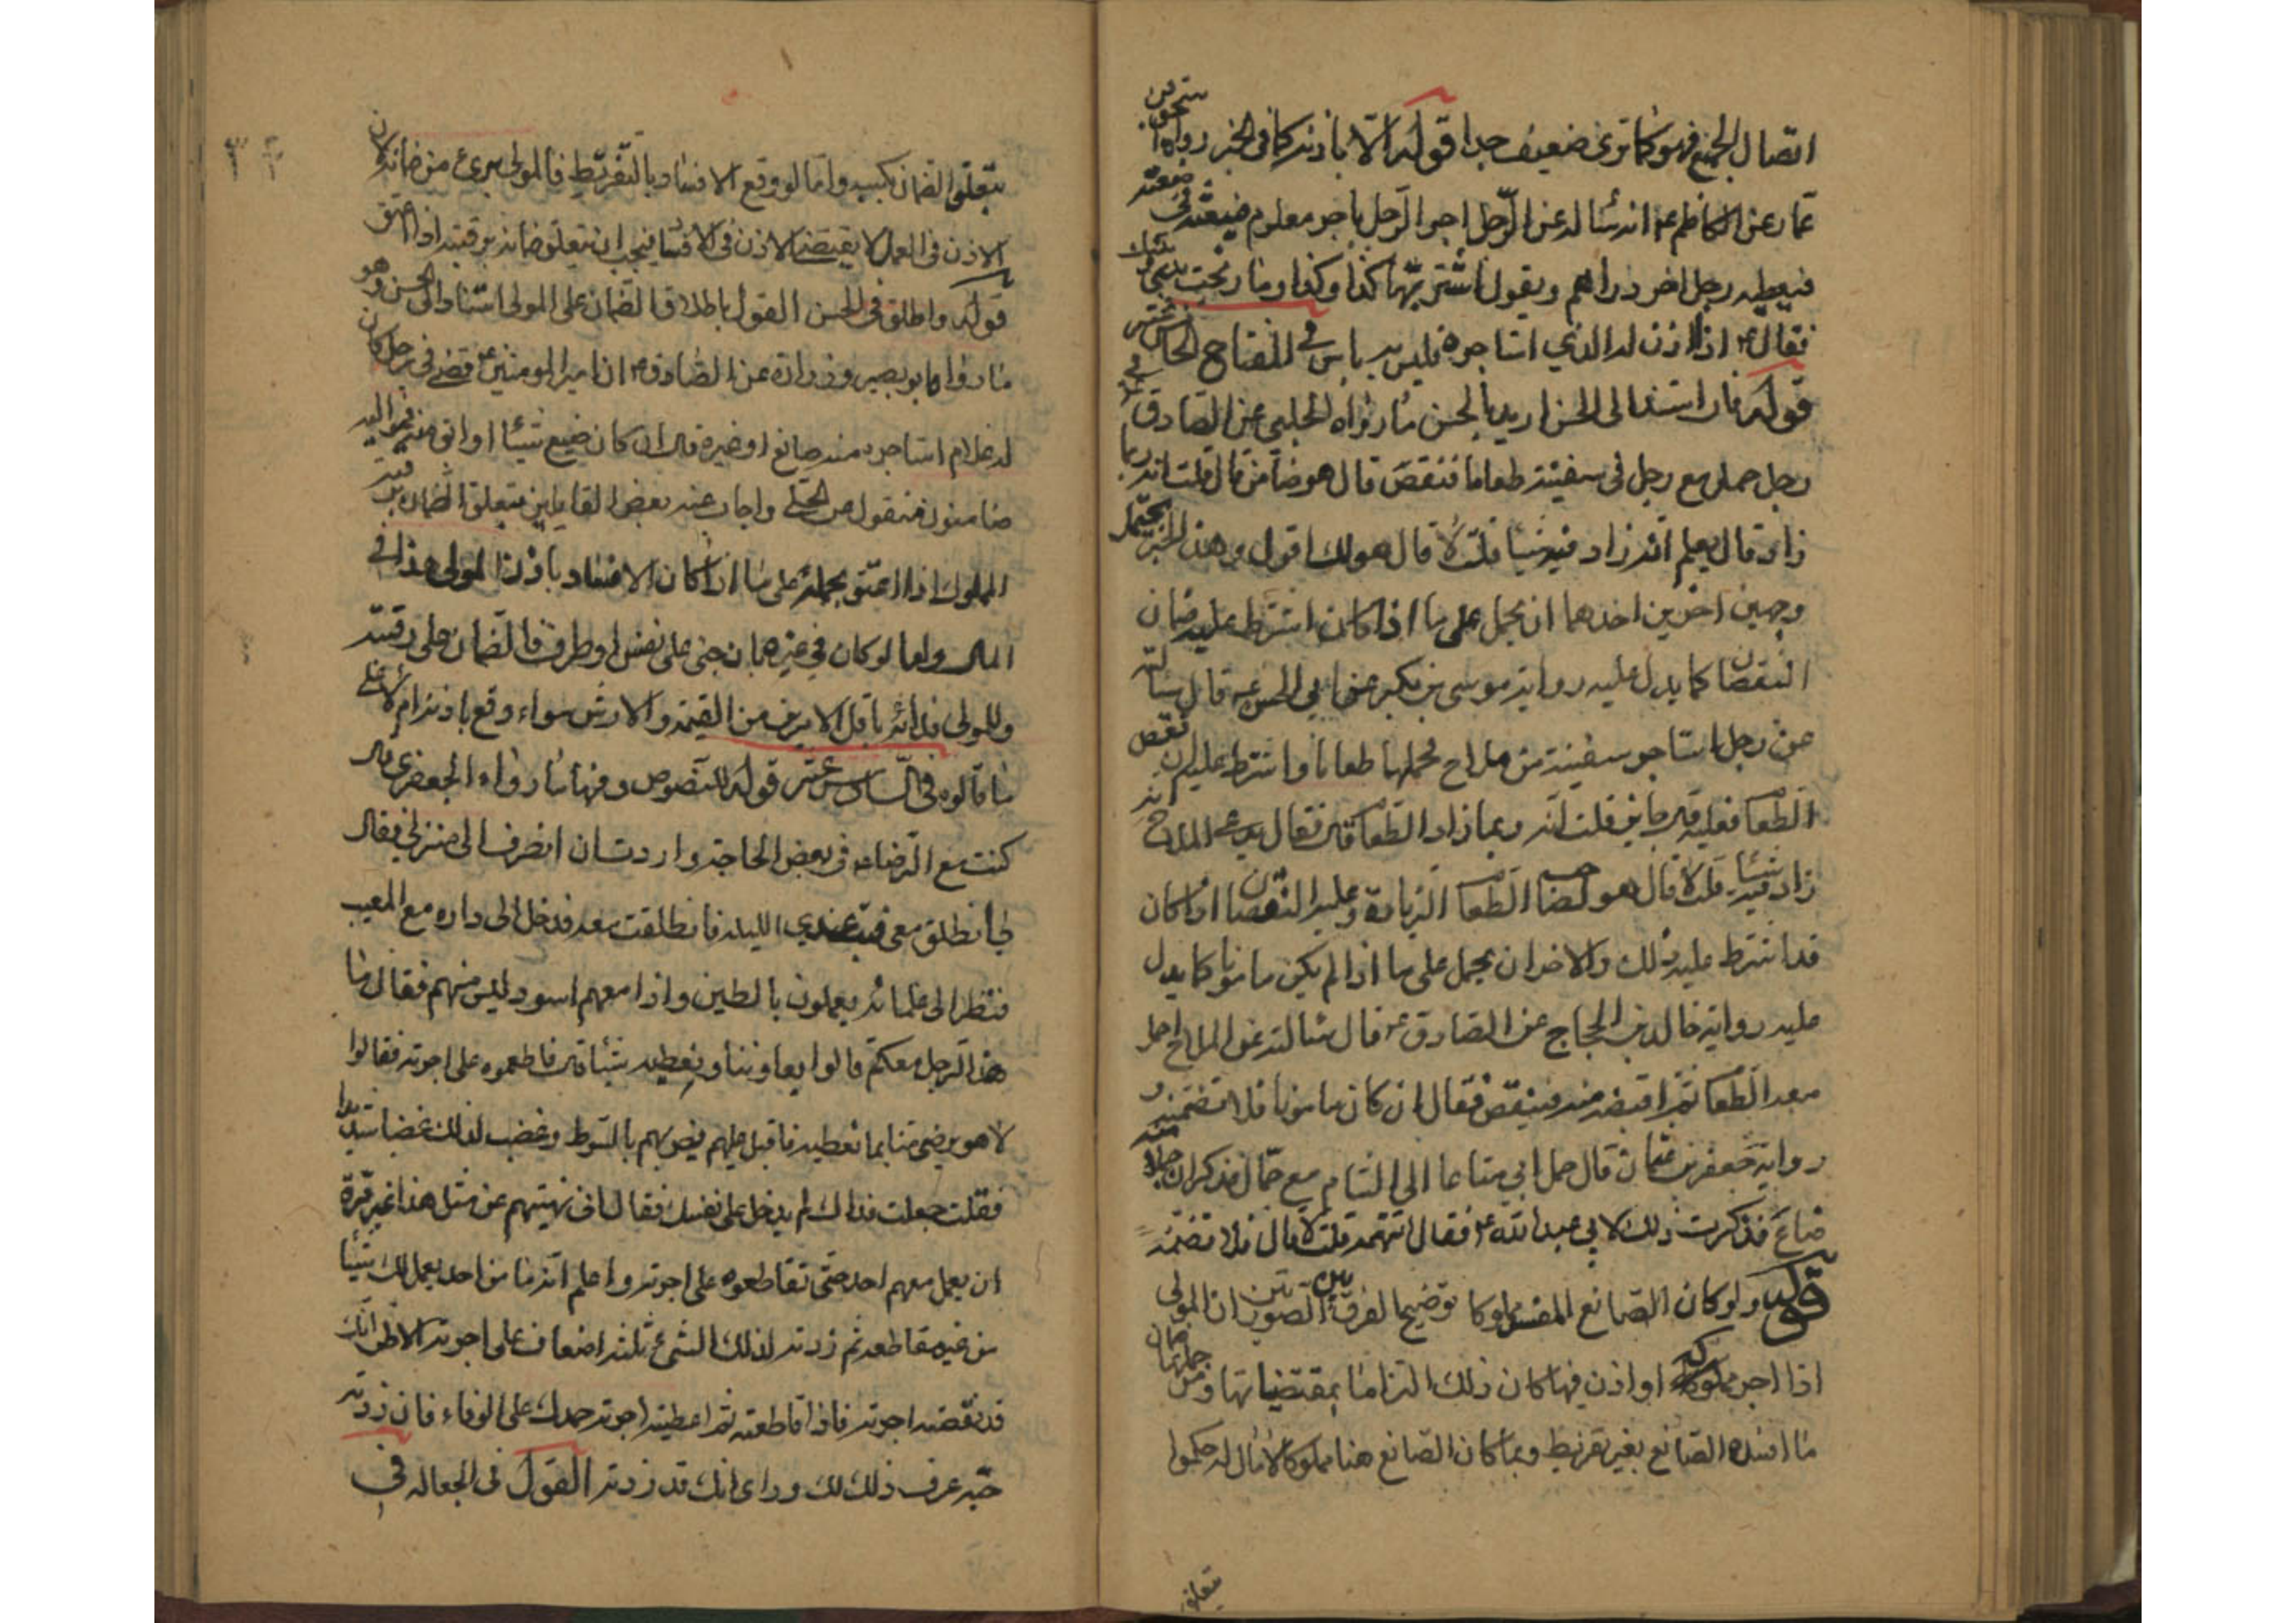 اتصال الجميع فهو كما ترى ضعيف جدا قوله الا باذنه كما فى الخبر رواه اسحق بن
عمار عن الكاظم ع انه سئاله عن الرجل اجر الرجل باجر معلوم ضيعته في ضيعته
فيعطيه رجل اخر دراهم ويقول اشتر بهما كذا وكذا وما ربحت بيني وبينك
فقال ع اذا اذن له الذي استاجره فليس به باس في المفتاح الخامس عشر
قوله فان استند الى الحسن اريد بالحسن ما رواه الحلبي عن الصادق ع في
رجل حمل مع رجل فى سفينته طعاما فنقص قال هو ضامن قال قلت انه ربما
زاد قال يعلم انه زاد فيه شيئا قلت لا قال هو لك اقول وهذا الخبر يحتمل
وجهين اخرين احدهما ان يحمل على ما اذا كان اشترط عليه ضمان
النقصان كما يدل عليه رواية موسى بن بكير عن ابي الحسن ع قال سئالته
عن رجل استاجر سفينة من ملاح فحملها طعاما واشترط عليه ان نقص
الطعام فعليه قال جايز قلت انه ربما زاد الطعام قال فقال يدعى الملاح انه
زاد فيه شيئا قلت لا قال هو لصاحب الطعام الزيادة وعليه النقصان اذا كان
قد اشترط عليه ذلك والاخر ان يحمل على ما اذا لم يكن مامونا كما يدل
عليه رواية خالد بن الحجاج عن الصادق ع قال سئالته عن الملاح احمل
معه الطعام ثم اقبضه منه فينقص فقال ان كان مامونا فلا تضمنه و
رواية جعفر بن عثمان قال حمل ابي متاعا الى الشام مع جمال فذكر ان حملا منه
ضاع فذكرت ذلك لابي عبد الله ع فقال اتتهمه قلت لا قال فلا تضمنه
قوله ولو كان الصانع المفسد مملوكا توضيحا لفرق بين الصورتين ان المولى
اذا اجر مملوكه او اذن فيها كان ذلك التزاما بمقتضياتها ومن جملتها ضمان
ما افسده الصانع بغير تفريط ولما كان الصانع هنا مملوكا لا مال له حكموا
تعلق
بتعلق الضمان بكسبه واما لو وقع الافساد بالتفريط فالمولى برىء من ضمانه لان
الاذن فى العمل لا يقتضى الاذن فى الافساد فيجب ان يتعلق ضمانه برقبته اذا اعتق
قوله واطلق فى الحسن القول باطلاق الضمان على المولى استنادا الى الحسن وهو
ما رواه ابو بصير وزرارة عن الصادق ع ان امير المومنين ع قضى في رجل كان
له غلام استاجره منه صانع او غيره قال ان كان ضيع شيئا او ابق منه فمواليه
ضامنون فنقول واجاب عنه بعض القايلين بتعلق الضمان برقبته
المملوك اذا اعتق بحمله على ما اذا كان الافساد باذن المولى هذا في
المال واما لو كان في غيره بان جنى على نفس او طرف فالضمان على رقبته
وللمولى فدائه باقل الامرين من القيمة والارش سواء وقع باذنه ام لا على
ما قالوه فى السادس عشر قوله للنصوص ومنها ما رواه الجعفرى قال
كنت مع الرضا ع فى بعض الحاجة واردت ان انصرف الى منزلى فقال
لي انطلق معى فبت عندي الليلة فانطلقت معه فدخل الى داره مع المعيب
فنظر الى غلمانه يعملون بالطين واذا معهم اسود ليس منهم فقال ما
هذا الرجل معكم قالوا يعاوننا ونعطيه شيئا قال قاطعموه على اجرته فقالوا
لا هو يرضى منا بما نعطيه فاقبل عليهم يضربهم بالسوط وغضب لذلك غضبا شديدا
فقلت جعلت فداك لم يدخل على نفسك فقال انى نهيتهم عن مثل هذا غير مرة
ان يعمل معهم احد حتى تقاطعوه على اجرته واعلم انه ما من احد يعمل لك شيئا
من غير مقاطعة ثم زدته لذلك الشىء ثلثة اضعاف على اجرته الا ظن انك
قد نقصته اجرته فاذا قاطعته ثم اعطيته اجرته حمدك على الوفاء فان زدته
حبة عرف ذلك لك وراى انك قد زدته القول فى الجعالة في